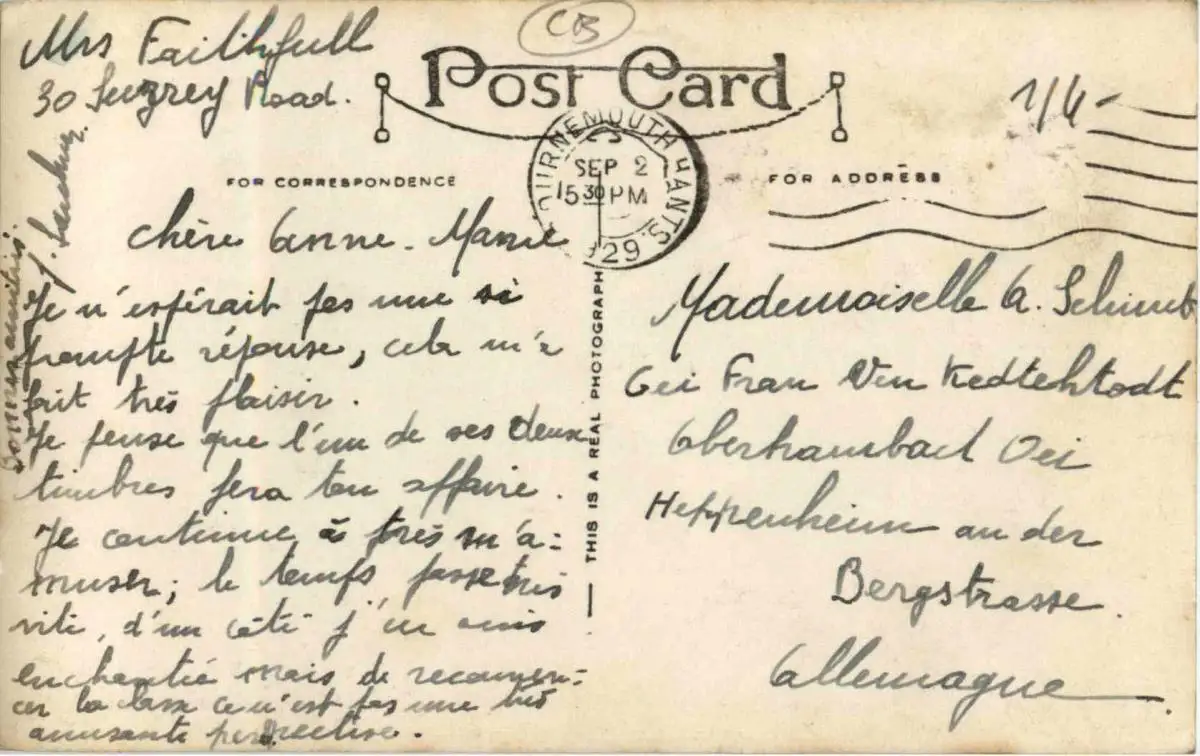 CB
Mrs Faithfull
30 Surrey Road.
Post Card
1/6-
BOURNEMOUTH HANTS.
SEP 2
5 30 PM
1929
FOR CORRESPONDENCE
FOR ADDRESS
chère Anne-Marie
Je n'espérait pas une si
prompte réponse, cela m'a
fait très plaisir.
Je pense que l'un de ses deux
timbres fera ton affaire.
Je continue à très m'a-
muser; le temps passe très
vite, d'un côté j'en suis
enchantée mais de recommen-
cer la classe ce n'est pas une très
amusante perspective.
Bonnes amitiés.
J.
THIS IS A REAL PHOTOGRAPH
Mademoiselle A.
bei Frau Von
Oberhambach bei
Heppenheim an der
Bergstrasse.
Allemagne